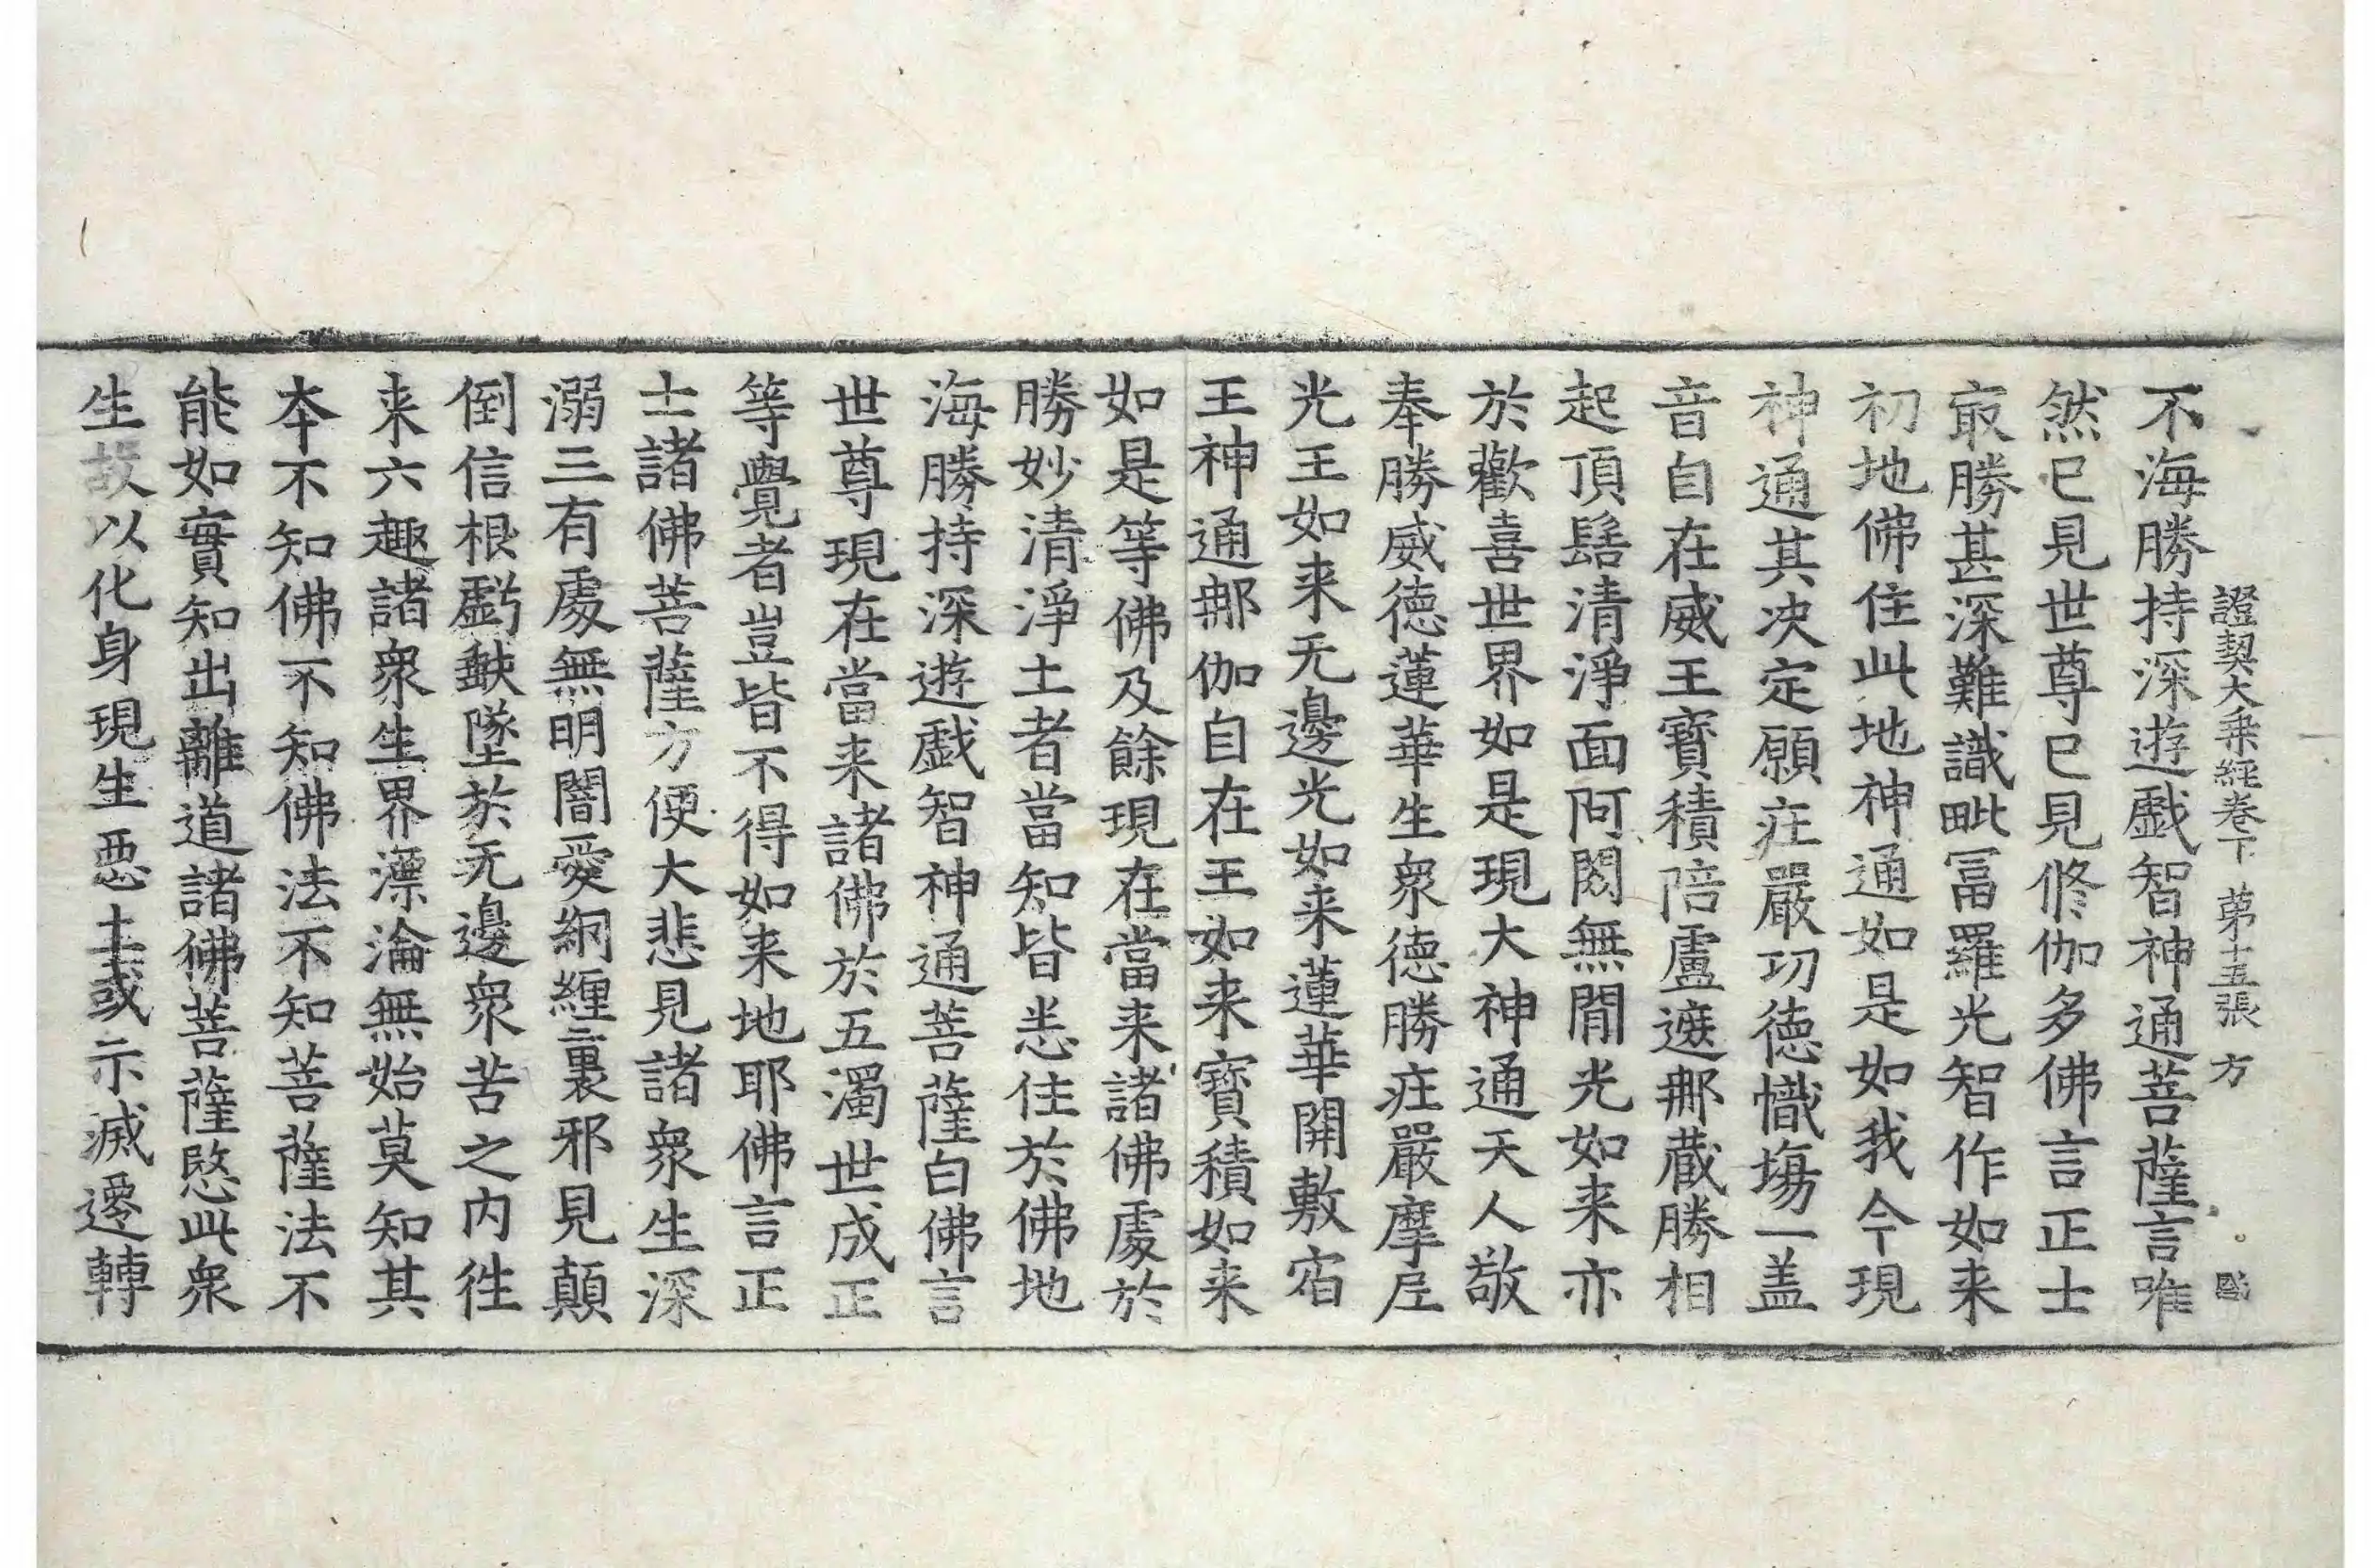 證契大乘經卷下 第十五張 方
不海勝持深遊戲智神通菩薩言唯
然已見世尊已見修伽多佛言正士
㝡勝甚深難識毗冨羅光智作如来
初地佛住此地神通如是如我今現
神通其决定願疘嚴功德幟塲一盖
音自在威王寶積陪盧遮那蔵勝相
起頂髻清淨面阿閦無閒光如来亦
於歡喜世界如是現大神通天人敬
奉勝威德蓮華生衆德勝疘嚴摩𡰱
光王如来无邊光如来蓮華開敷宿
王神通那伽自在王如来寶積如来
如是等佛及餘現在當来諸佛處於
勝妙清淨土者當知皆悉住於佛地
海勝持深遊戲智神通菩薩白佛言
世尊現在當来諸佛於五濁世成正
等覺者豈皆不得如来地耶佛言正
士諸佛菩薩方便大悲見諸衆生深
溺三有處無明闇愛網纏裹邪見顛
倒信根虧缺墜於无邊衆苦之内徃
来六趣諸衆生界漂淪無始莫知其
本不知佛不知佛法不知菩薩法不
能如實知出離道諸佛菩薩愍此衆
生故以化身現生惡土或示滅遷轉